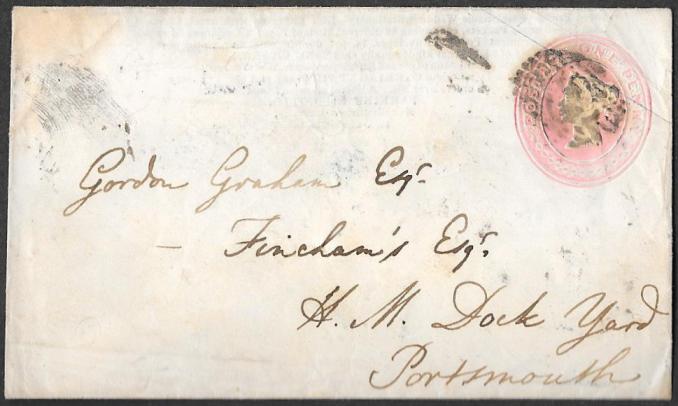 POSTAGE ONE PENNY
Gordon Graham Esqr.
— Fincham's Esqr.
H. M. Dock Yard
Portsmouth